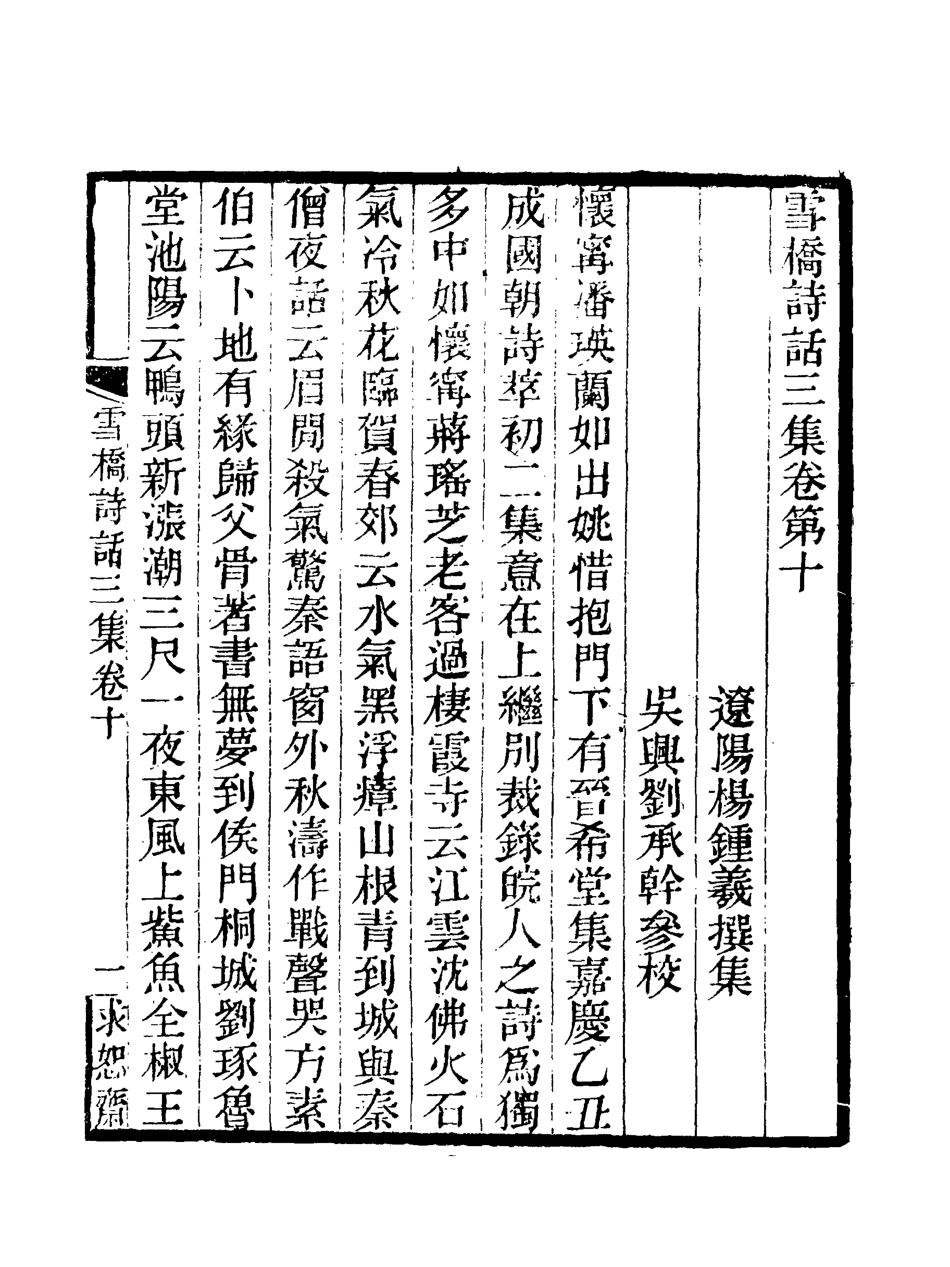 雪橋詩話三集卷第十
遼陽楊鍾羲撰集
吳興劉承幹參校
懷甯潘瑛蘭如出姚惜抱門下有晉希堂集嘉慶乙丑
成國朝詩萃初二集意在上繼別裁錄皖人之詩爲獨
多中如懷甯蔣瑤芝老客過棲霞寺云江雲沈佛火石
氣冷秋花臨賀春郊云水氣黑浮瘴山根青到城與秦
僧夜話云眉閒殺氣驚秦語窗外秋濤作戰聲哭方素
伯云卜地有緣歸父骨著書無夢到侯門桐城劉琢魯
堂池陽云鴨頭新漲潮三尺一夜東風上鮆魚全椒王
雪橋詩話三集卷十
一
求恕齋